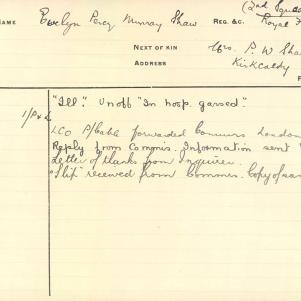 (2nd Squad
NAME Evelyn Percy Murray Shaw REG. &C. Royal F
NEXT OF KIN Mrs. P. W Sha
ADDRESS Kirkcaldy
"Ill". Unoff "In hosp. gassed".
LCO P/Cable forwarded Commrs London
Reply from Commis. Information sent
Letter of thanks from Inquirer.
"Slip" received from Commis. Copy of sam